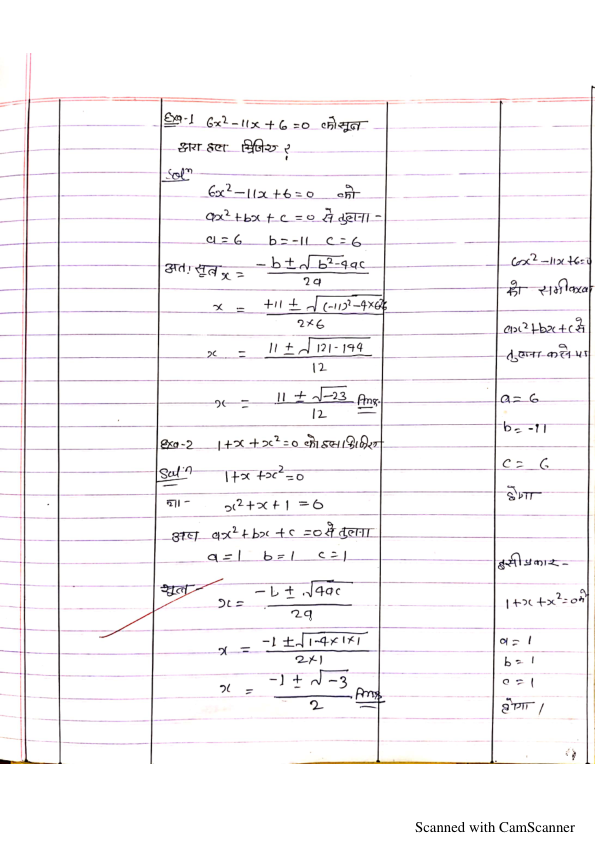 Exa-1 6x²-11x+6=0 को सूत्र
हल किजिए ?
Solⁿ
6x²-11x+6=0 को
ax²+bx+c=0 से तुलना -
a=6 b=-11 c=6
अतः सूत्र x = (-b±√b²-4ac)/2a
x = (+11 ± √(-11)²-4×6×6)/2×6
x = (11 ± √121-144)/12
x = (11 ± √-23)/12 Ans
Exa-2 1+x+x²=0 को हल किजिए
Solⁿ 1+x+x²=0
या - x²+x+1=0
अब ax²+bx+c=0 से तुलना
a=1 b=1 c=1
सूत्र - x = (-b ± √4ac)/2a
x = (-1 ± √1-4×1×1)/2×1
x = (-1 ± √-3)/2 Ans
6x²-11x+6=0
को समीकरण
ax²+bx+c से
तुलना करने पर
a=6
b=-11
c=6
होगा
इसी प्रकार -
1+x+x²=0 मे
a=1
b=1
c=1
होगा /
Scanned with CamScanner